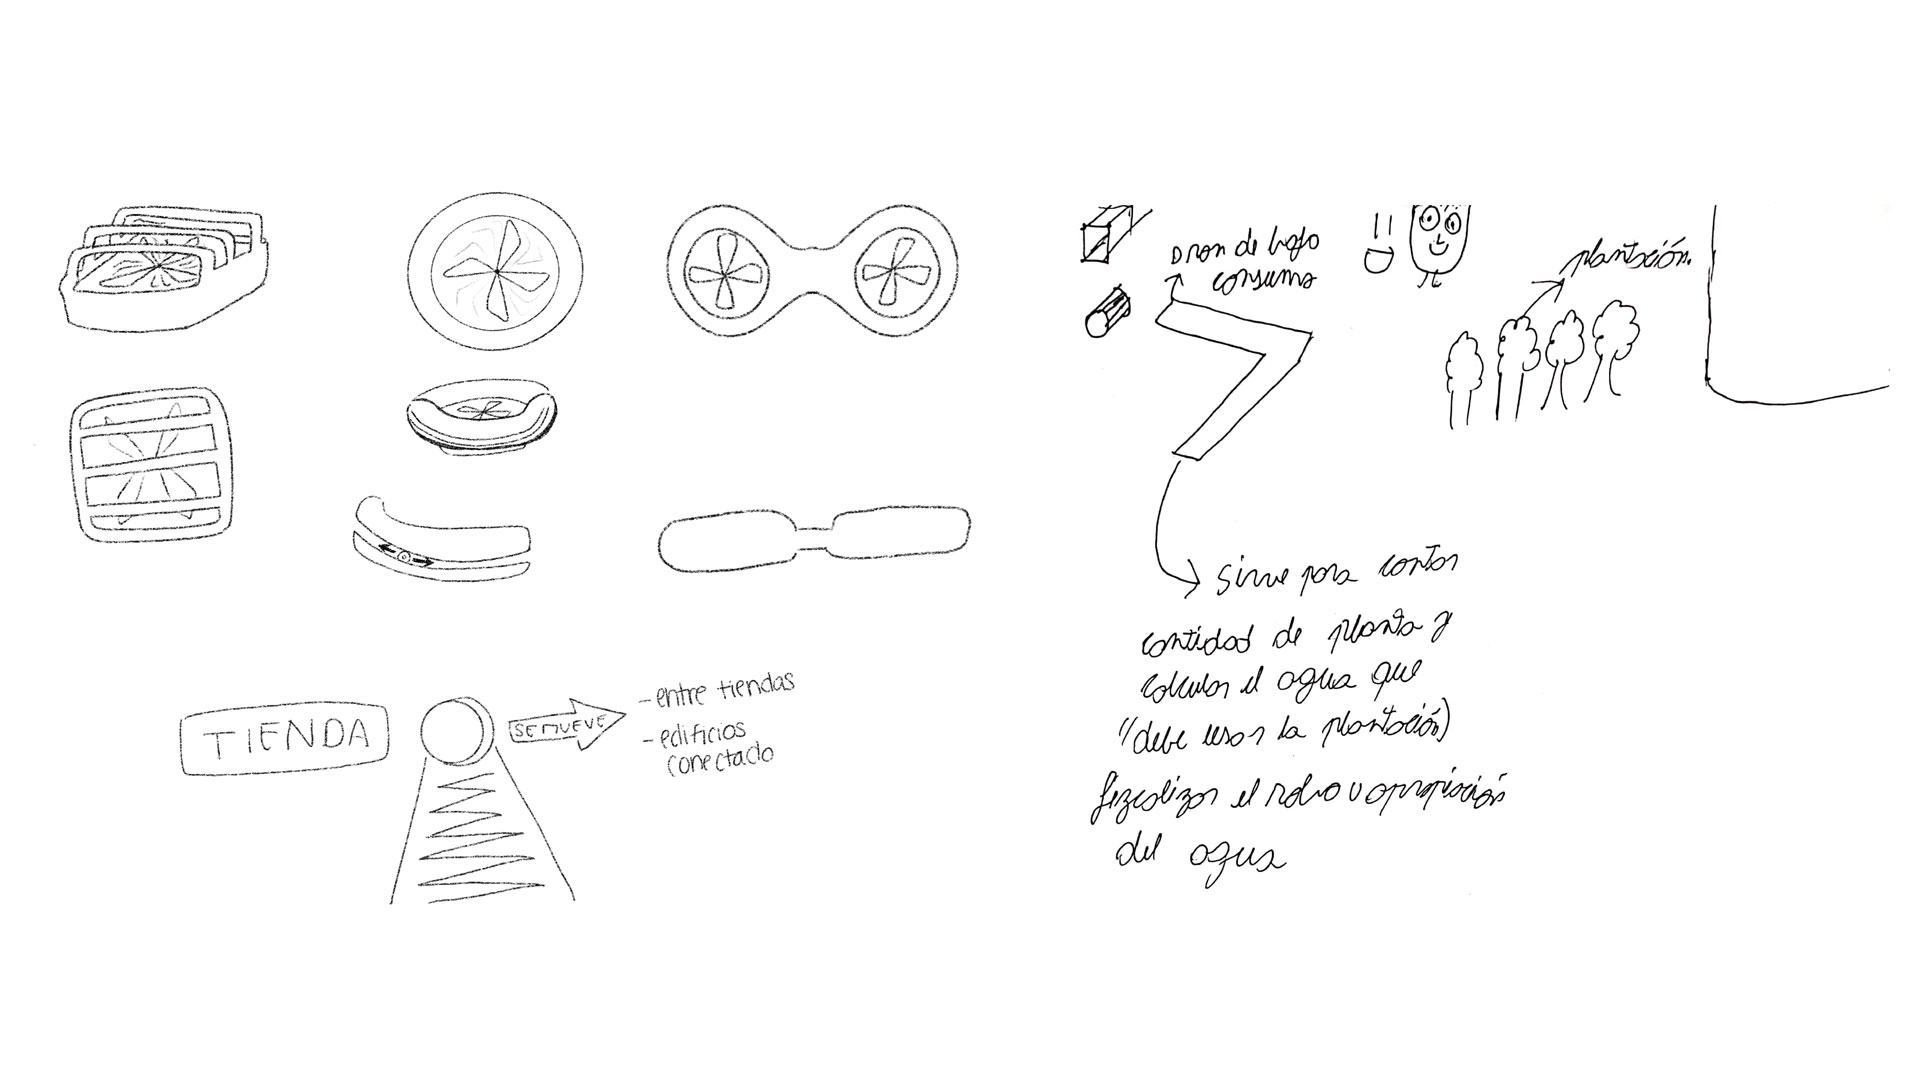 TIENDA
SE MUEVE
- entre tiendas
- edificios
conectado
Dron de bajo
consumo
plantación.
Sirve para contar
cantidad de planta y
calcular el agua que
"(debe usar la plantación)
fizcalizar el robo u apropiación
del agua